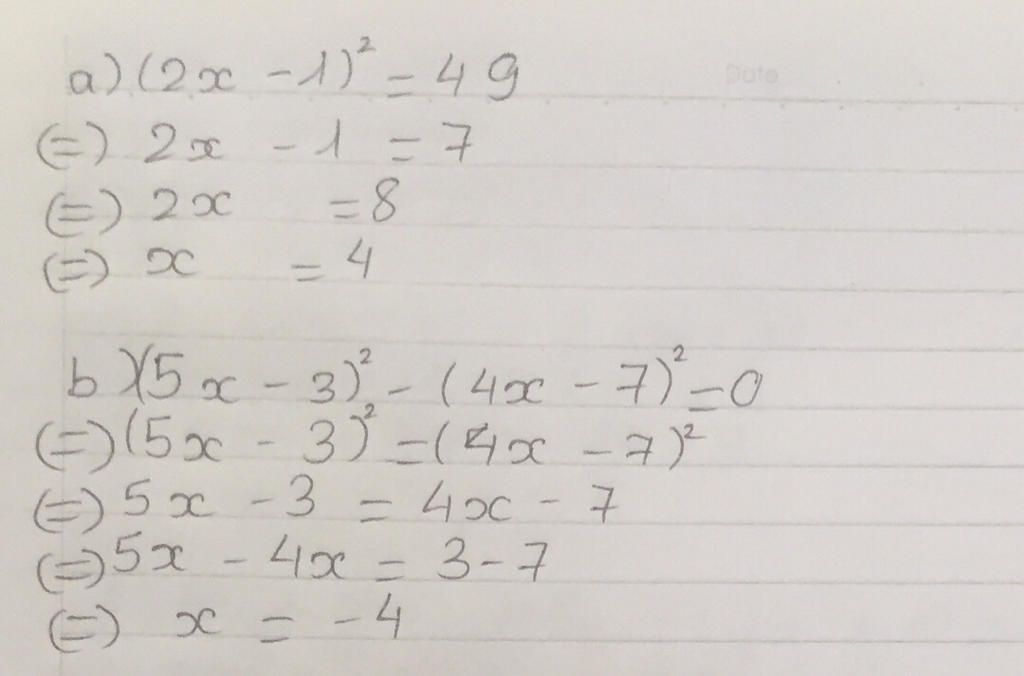 a) (2x - 1)² = 49
Date
(=) 2x - 1 = 7
(=) 2x = 8
(=) x = 4
b) (5x - 3)² - (4x - 7)² = 0
(=) (5x - 3)² = (4x - 7)²
(=) 5x - 3 = 4x - 7
(=) 5x - 4x = 3 - 7
(=) x = - 4